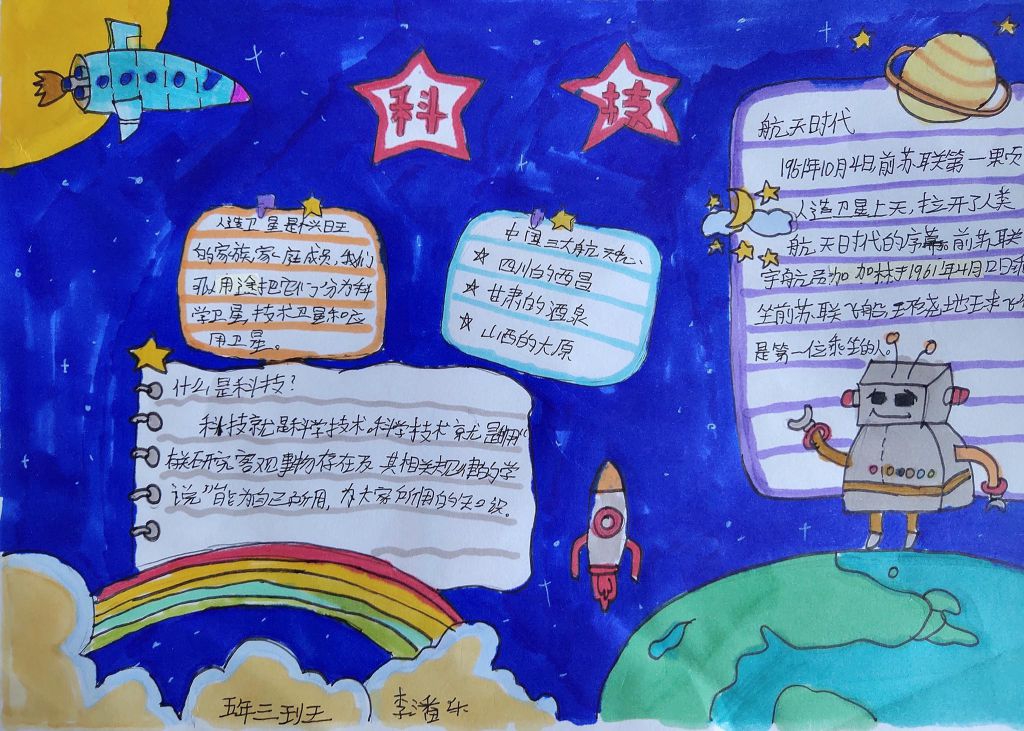 科 技
人造卫星是兴旺
的家族,家庭成员,我们
可以用途把它们分为科
学卫星,技术卫星和应
用卫星。
中国三大航天
☆ 四川的西昌
☆ 甘肃的酒泉
☆ 山西的太原
航天时代
1951年10月4日,前苏联第一颗
人造卫星上天,拉开了人类
航天时代的序幕。前苏联
宇航员加加林于1961年4月12日
坐前苏联飞船
是第一位乘坐的人。
什么是科技?
科技就是科学技术,科学技术就是用
研究客观事物存在及其相关规律的学
说”能为自己所用,为大家所用的知识。
五年三班
李潘乐